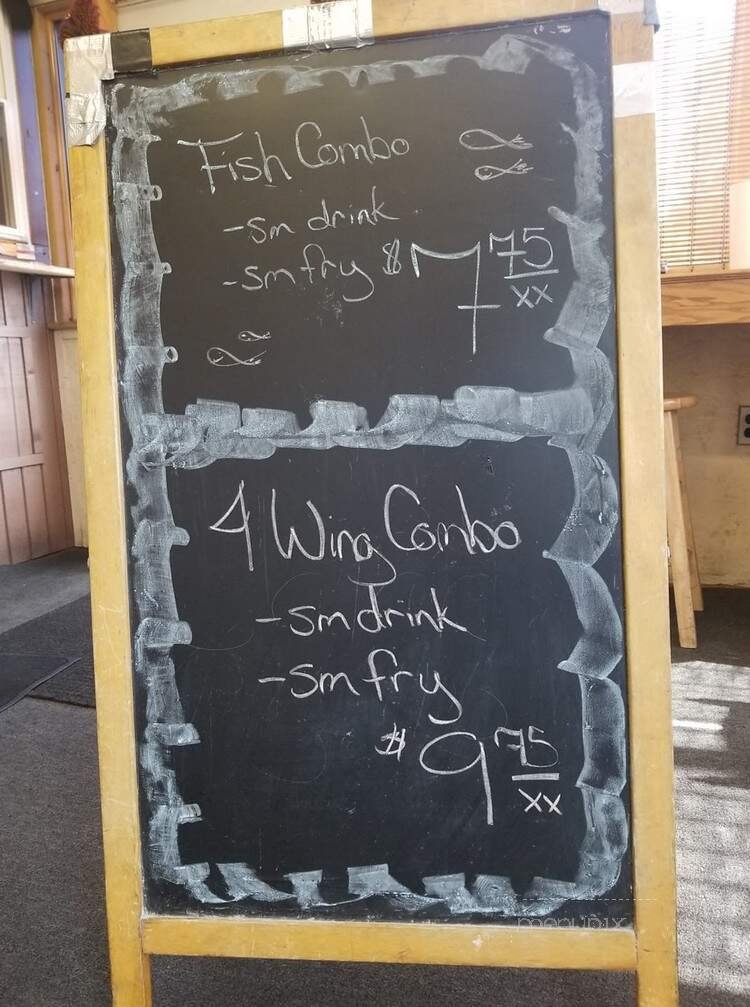 Fish Combo
-sm drink
-sm fry $7 75/xx
4 Wing Combo
-sm drink
-sm fry
$9 75/xx
menupix